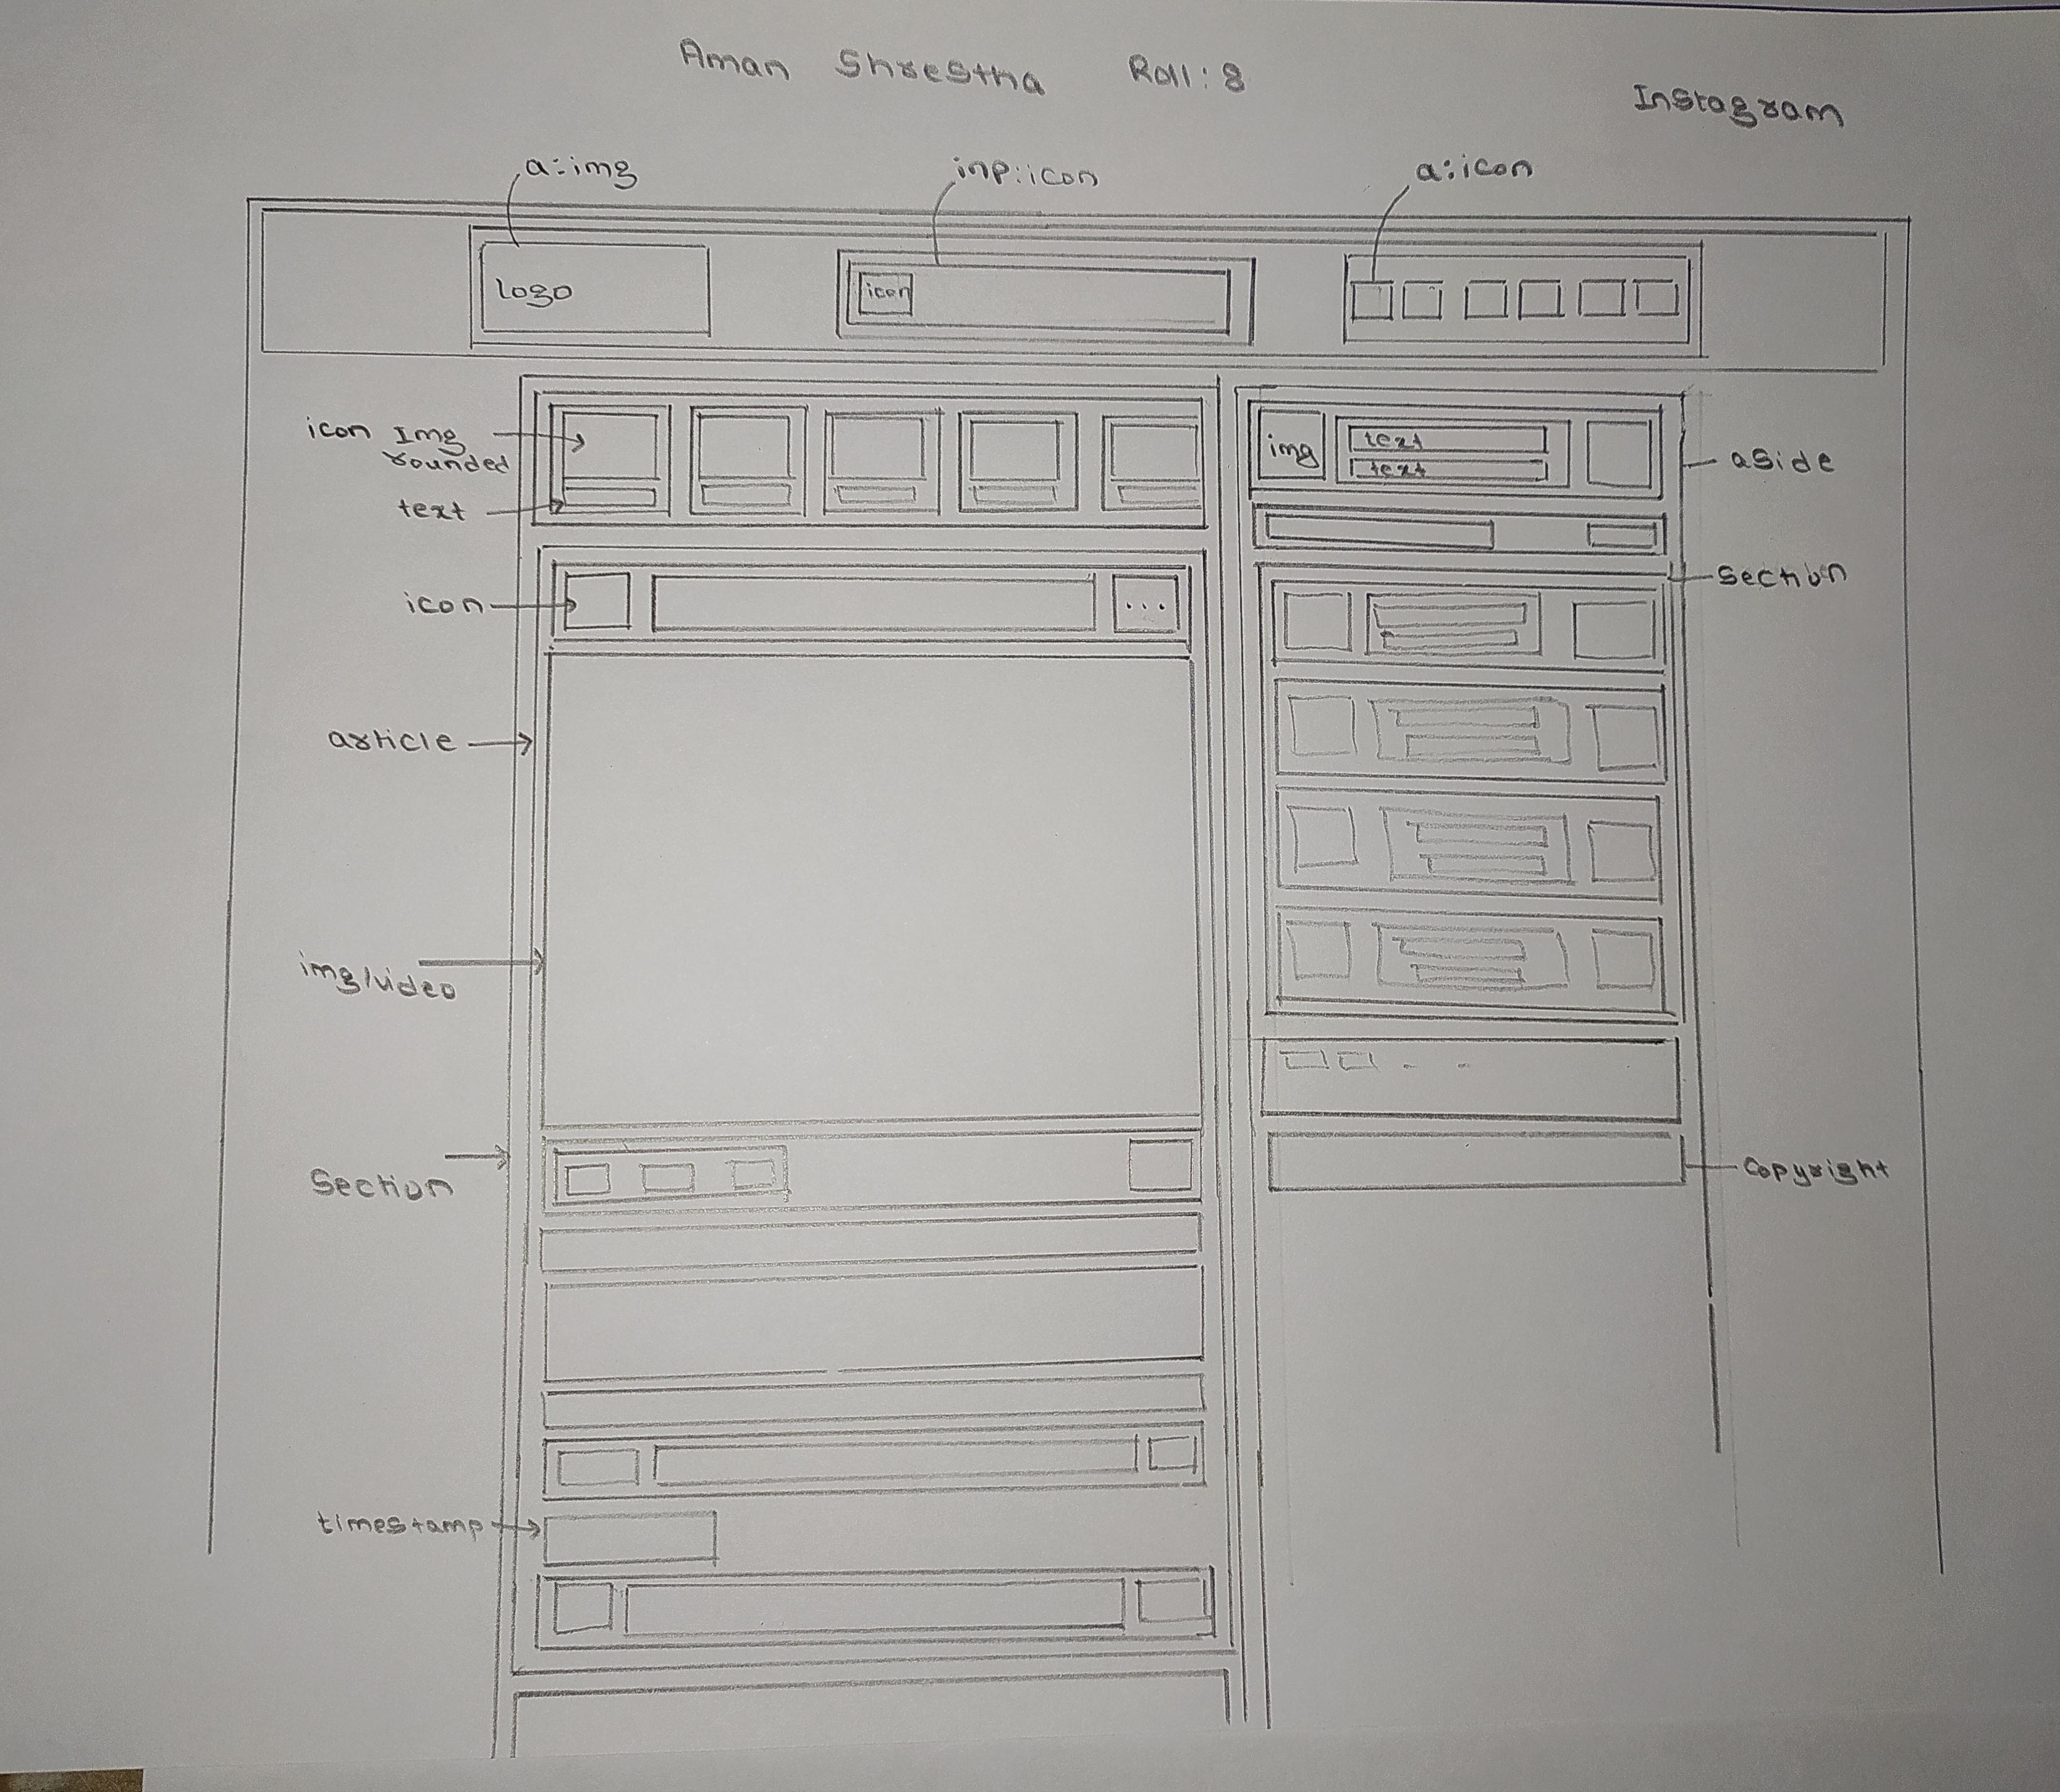 Aman Shrestha Roll: 8
Instagram
a:img
inp:icon
a:icon
logo
icon
icon Img
rounded
text
img
text
text
aside
section
icon
...
article
img/video
Section
Copyright
timestamp